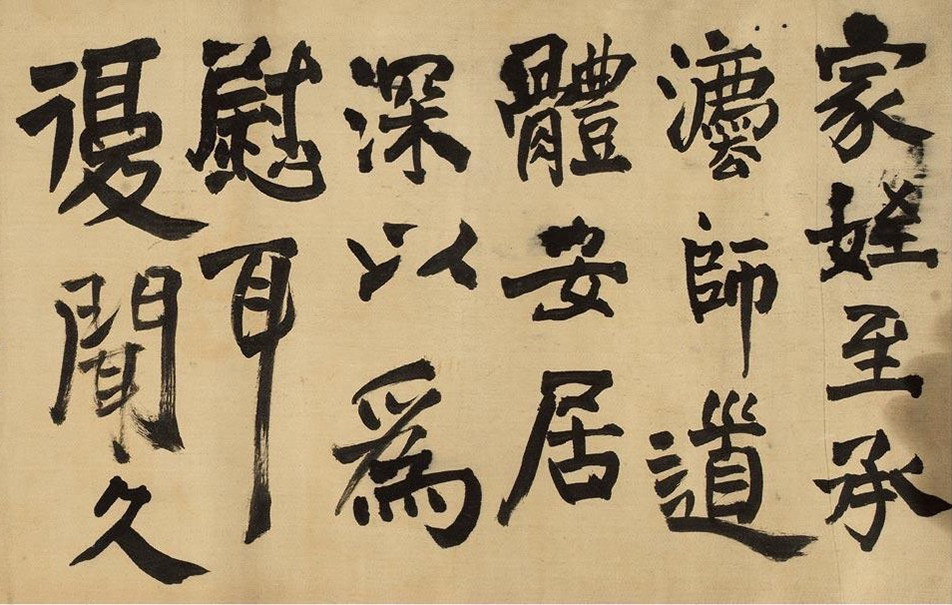 家姪至承
師道
體安居
深以爲
慰耳
復聞久